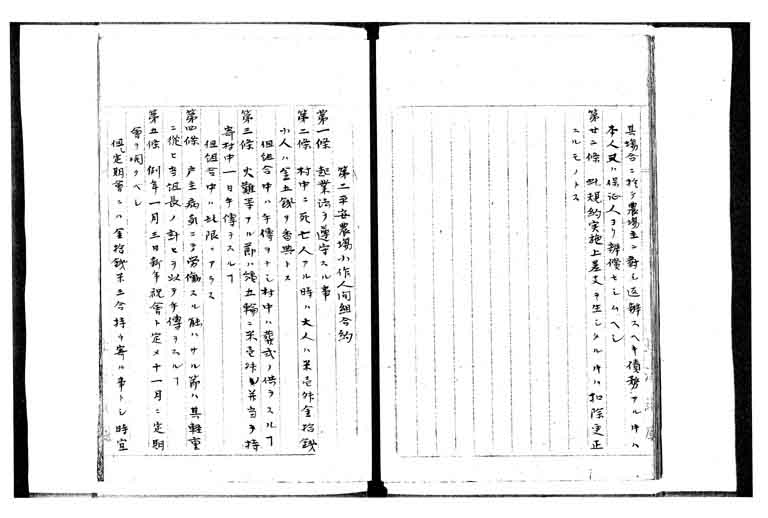 其場合ニ於テ農場主ニ對シ返辨スヘキ債務アル片ハ
本人又ハ保証人ヨリ辨償セシムヘシ
第廿二條 此規約実施上差支ヲ生シタル片ハ扣除更正
スルモノトス
第二平安農場小作人間組合約
第一條 起業法ヲ遵守スル事
第二條 村中ニ死亡人アル時ハ大人ハ米壱升金拾銭
小人ハ金五銭ヲ香典トス
但組合中ハ手傳ヲナシ村中ハ葬式ノ供ヲスルヿ
第三條 火難等アル節ハ縄五輪ニ米壱升弁当ヲ持
寄村中一日手傳ヲスルヿ
但組合中ハ此限ニアラス
第四條 戸主病気ニテ労働スル能ハサル節ハ其軽重
ニ從ヒ当組長ノ計ヒヲ以テ手傳ヲスルヿ
第五條 例年一月三日新年祝會ト定メ十一月ニ定期
會ヲ開クベシ
但定期會ニハ金拾銭米三合持チ寄ル事トシ時宜